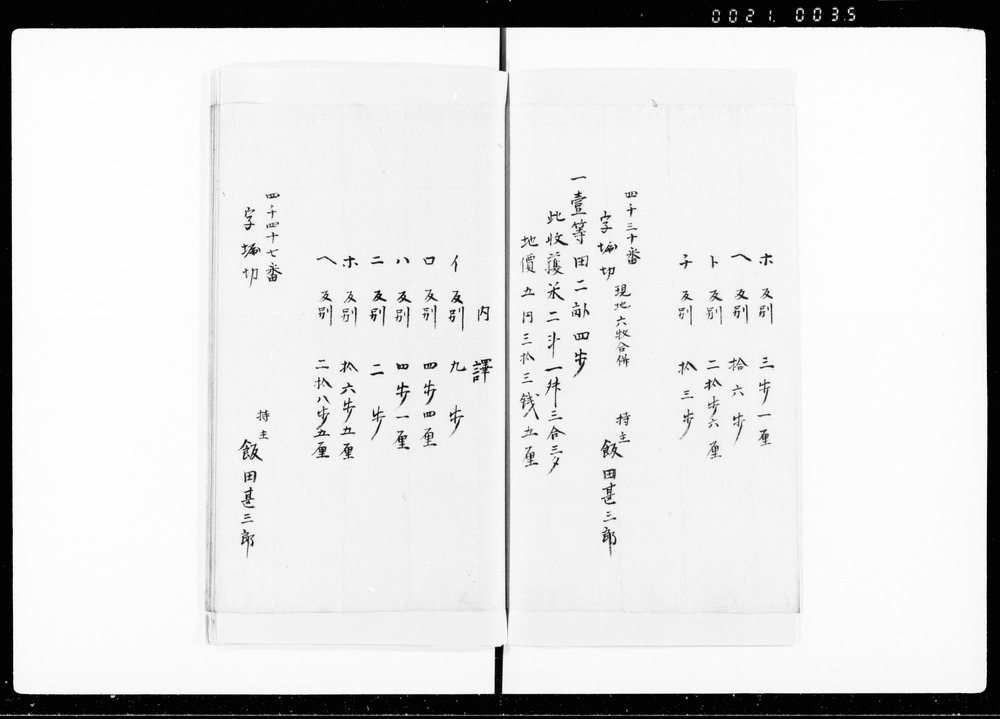 0021. 0035
ホ 反別 三歩一厘
ヘ 反別 拾六歩
ト 反別 二拾歩六厘
チ 反別 拾三歩
四千三十番
字堀切 現地六牧合併 持主 飯田甚三郎
一壹等田二畝四歩
此收蔆米二斗一舛三合三夕
地價五円三拾三銭五厘
内譯
イ 反別 九歩
ロ 反別 四歩四厘
ハ 反別 四歩一厘
ニ 反別 二歩
ホ 反別 拾六歩五厘
ヘ 反別 二拾八歩五厘
四千四十七番
字堀切 持主 飯田甚三郎